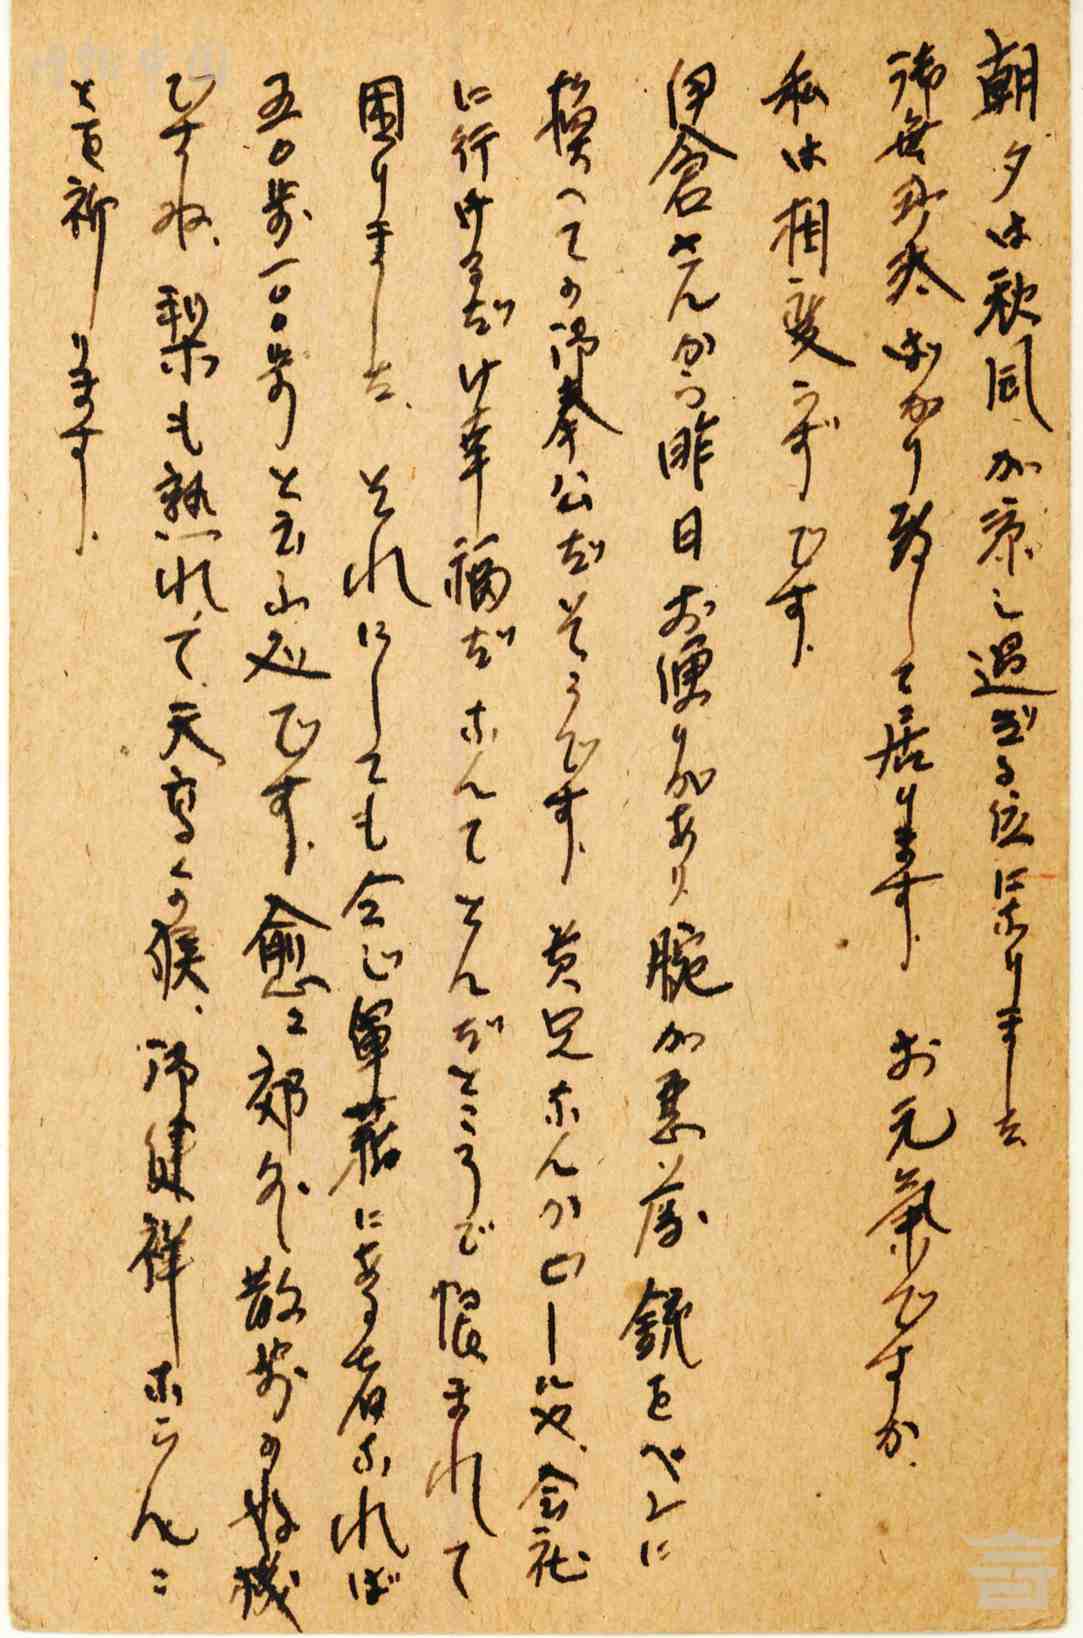 朝夕は秋風が涼し過ぎる位になりました
御無沙汰ばかり致して居ります お元氣ですか、
私は相変らずです、
伊倉さんから昨日お便りがあり 腕が悪 銃をペンに
換へての御奉公だそうです、貴兄なんか 会社
に行けるだけ幸福だなんてとんだところで恨まれて
困りました、それにしても全じ軍籍にある者なれば
五〇歩一〇〇歩と云ふ処です、愈々郊外散歩の好機
ですね、梨も熟れて、天高くの候、御健祥ならんこ
とを祈ります、